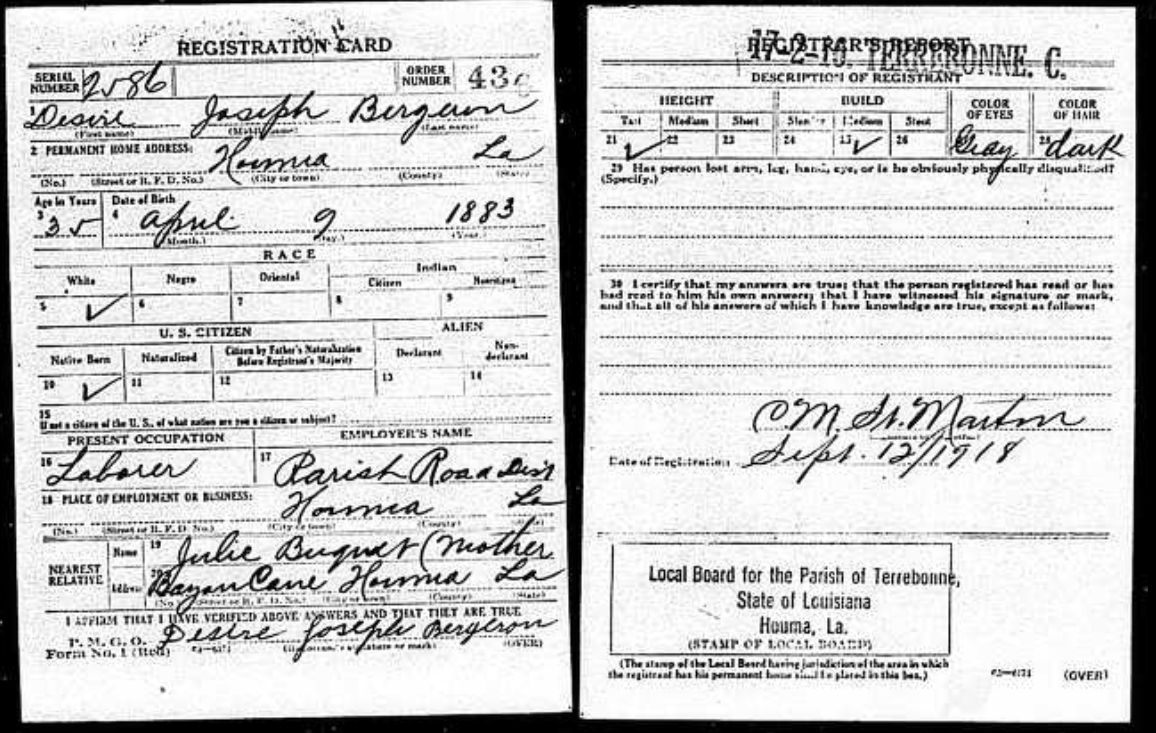 REGISTRATION CARD
SERIAL NUMBER 2586 ORDER NUMBER 43
1 Desire Joseph Bergeron
(First name) (Middle name) (Last name)
2 PERMANENT HOME ADDRESS:
Houma La
(No.) (Street or R. F. D. No.) (City or town) (County) (State)
Age in Years Date of Birth
3 35 4 April 9 1883
(Month.) (Day.) (Year.)
RACE
White Negro Oriental Indian
Citizen Noncitizen
5 ✓ 6 7 8 9
U. S. CITIZEN ALIEN
Native Born Naturalized Citizen by Father's Naturalization Before Registrant's Majority Declarant Non-declarant
10 ✓ 11 12 13 14
15
If not a citizen of the U. S., of what nation are you a citizen or subject?
PRESENT OCCUPATION EMPLOYER'S NAME
16 Laborer 17 Parish Road Dist
18 PLACE OF EMPLOYMENT OR BUSINESS:
Houma La
(No.) (Street or R. F. D. No.) (City or town) (County) (State)
NEAREST RELATIVE
Name 19 Julie Buquet (Mother
Address 20 Bayou Cane Houma La
(No.) (Street or R. F. D. No.) (City or town) (County) (State)
I AFFIRM THAT I HAVE VERIFIED ABOVE ANSWERS AND THAT THEY ARE TRUE
P. M. G. O.
Form No. 1 (Red) Desire Joseph Bergeron
(Registrant's signature or mark) (OVER)
REGISTRAR'S REPORT
TERREBONNE. C.
DESCRIPTION OF REGISTRANT
HEIGHT BUILD COLOR OF EYES COLOR OF HAIR
Tall Medium Short Slender Medium Stout
21 ✓ 22 23 24 25 ✓ 26 Gray dark
29 Has person lost arm, leg, hand, eye, or is he obviously physically disqualified?
(Specify.)
30 I certify that my answers are true; that the person registered has read or has
had read to him his own answers; that I have witnessed his signature or mark,
and that all of his answers of which I have knowledge are true, except as follows:
C M St. Martin
Date of Registration Sept. 12/1918
Local Board for the Parish of Terrebonne,
State of Louisiana
Houma, La.
(STAMP OF LOCAL BOARD)
(The stamp of the Local Board having jurisdiction of the area in which
the registrant has his permanent home shall be placed in this box.)
(OVER)